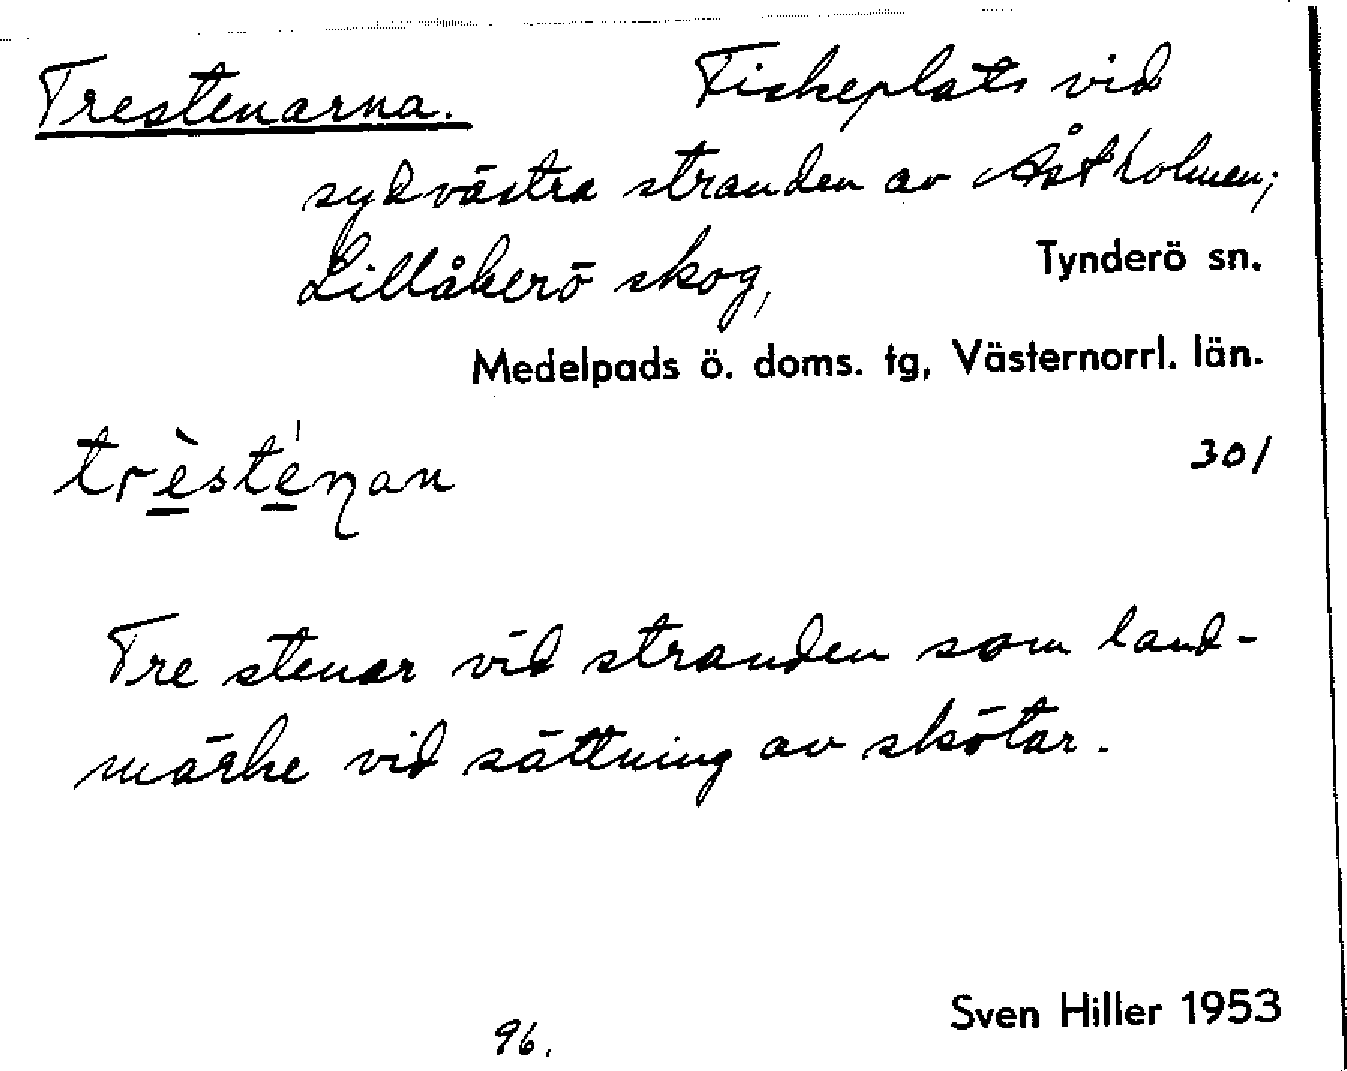 Trestenarna. Fiskeplats vid
sydvästra stranden av Åstholmen;
Lillåkerö skog, Tynderö sn.
Medelpads ö. doms. tg, Västernorrl. län.
trèsté̱ŋan 301
Tre stenar vid stranden som land-
märke vid sättning av skötar.
Sven Hiller 1953
96.